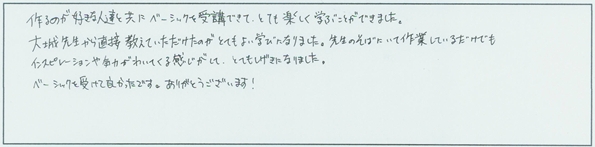 作るのが好きな人達と共にベーシックを受講できて、とても楽しく学ぶことができました。
大城先生から直接教えていただけたのがとてもよい学びになりました。先生のそばにいて作業しているだけでも
インスピレーションや自力がわいてくる感じがして、とてもしげきになりました。
ベーシックを受けて良かったです。ありがとうございます！